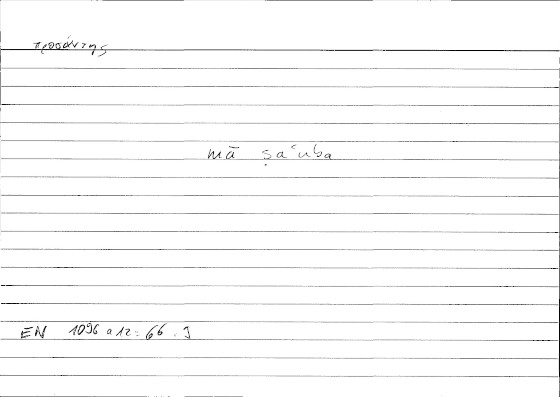 προσάντης
mā ṣaʿuba
EN 1096 a 12 = 66.9